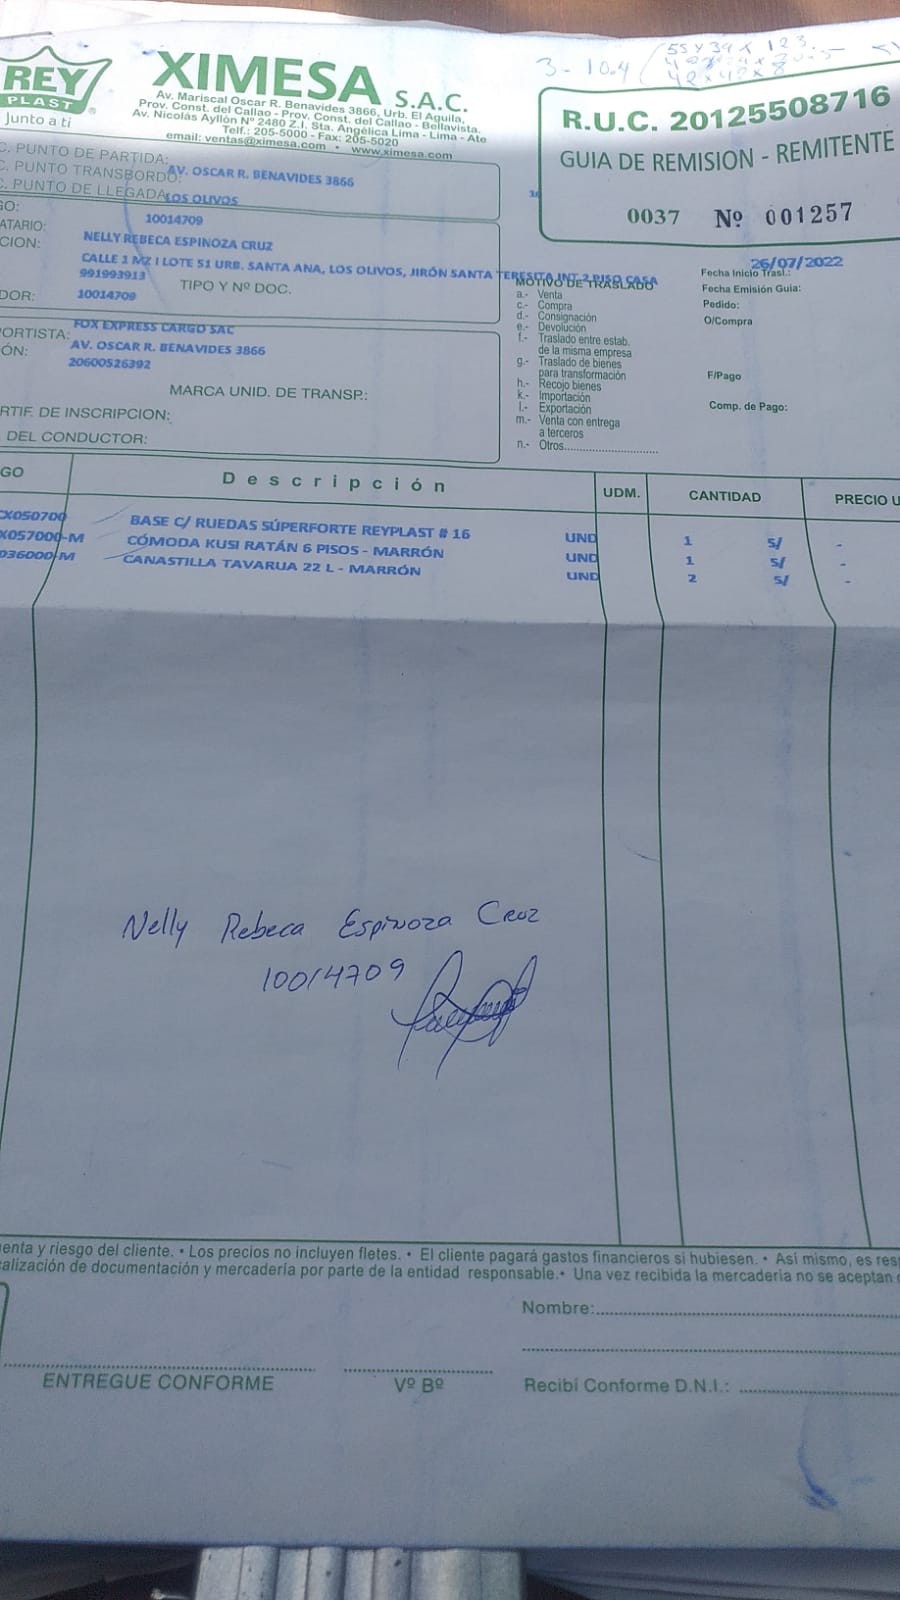 REY
PLAST
Junto a ti
XIMESA S.A.C.
Av. Mariscal Oscar R. Benavides 3866, Urb. El Aguila,
Prov. Const. del Callao - Prov. Const. del Callao - Bellavista.
Av. Nicolás Ayllón Nº 2480 Z.I. Sta. Angélica Lima - Lima - Ate
Telf.: 205-5000 - Fax: 205-5020
email: ventas@ximesa.com • www.ximesa.com
3 - 10.4
55 x 39 x 123
R.U.C. 20125508716
GUIA DE REMISION - REMITENTE
0037 Nº 001257
C. PUNTO DE PARTIDA:
C. PUNTO TRANSBORDO: AV. OSCAR R. BENAVIDES 3866
C. PUNTO DE LLEGADA: LOS OLIVOS
GO: 10014709
ATARIO: NELLY REBECA ESPINOZA CRUZ
CION: CALLE 1 MZ I LOTE 51 URB. SANTA ANA, LOS OLIVOS, JIRÓN SANTA TERESITA INT 2 PISO CASA
991993913
TIPO Y Nº DOC.
DOR: 10014709
FOX EXPRESS CARGO SAC
PORTISTA: AV. OSCAR R. BENAVIDES 3866
ÓN: 20600526392
MARCA UNID. DE TRANSP.:
RTIF. DE INSCRIPCION:
DEL CONDUCTOR:
MOTIVO DE TRASLADO
a.- Venta
c.- Compra
d.- Consignación
e.- Devolución
f.- Traslado entre estab.
de la misma empresa
g.- Traslado de bienes
para transformación
h.- Recojo bienes
k.- Importación
l.- Exportación
m.- Venta con entrega
a terceros
n.- Otros
26/07/2022
Fecha Inicio Trasl.:
Fecha Emisión Guia:
Pedido:
O/Compra
F/Pago
Comp. de Pago:
GO Descripción UDM. CANTIDAD PRECIO U
CX050700 BASE C/ RUEDAS SÚPERFORTE REYPLAST # 16 UND 1 S/ -
X057000-M CÓMODA KUSI RATÁN 6 PISOS - MARRÓN UND 1 S/ -
036000-M CANASTILLA TAVARUA 22 L - MARRÓN UND 2 S/ -
Nelly Rebeca Espinoza Cruz
10014709
enta y riesgo del cliente. • Los precios no incluyen fletes. • El cliente pagará gastos financieros si hubiesen. • Asi mismo, es res
alización de documentación y mercadería por parte de la entidad responsable. • Una vez recibida la mercadería no se aceptan
Nombre:
ENTREGUE CONFORME
Vº Bº
Recibí Conforme D.N.I.: